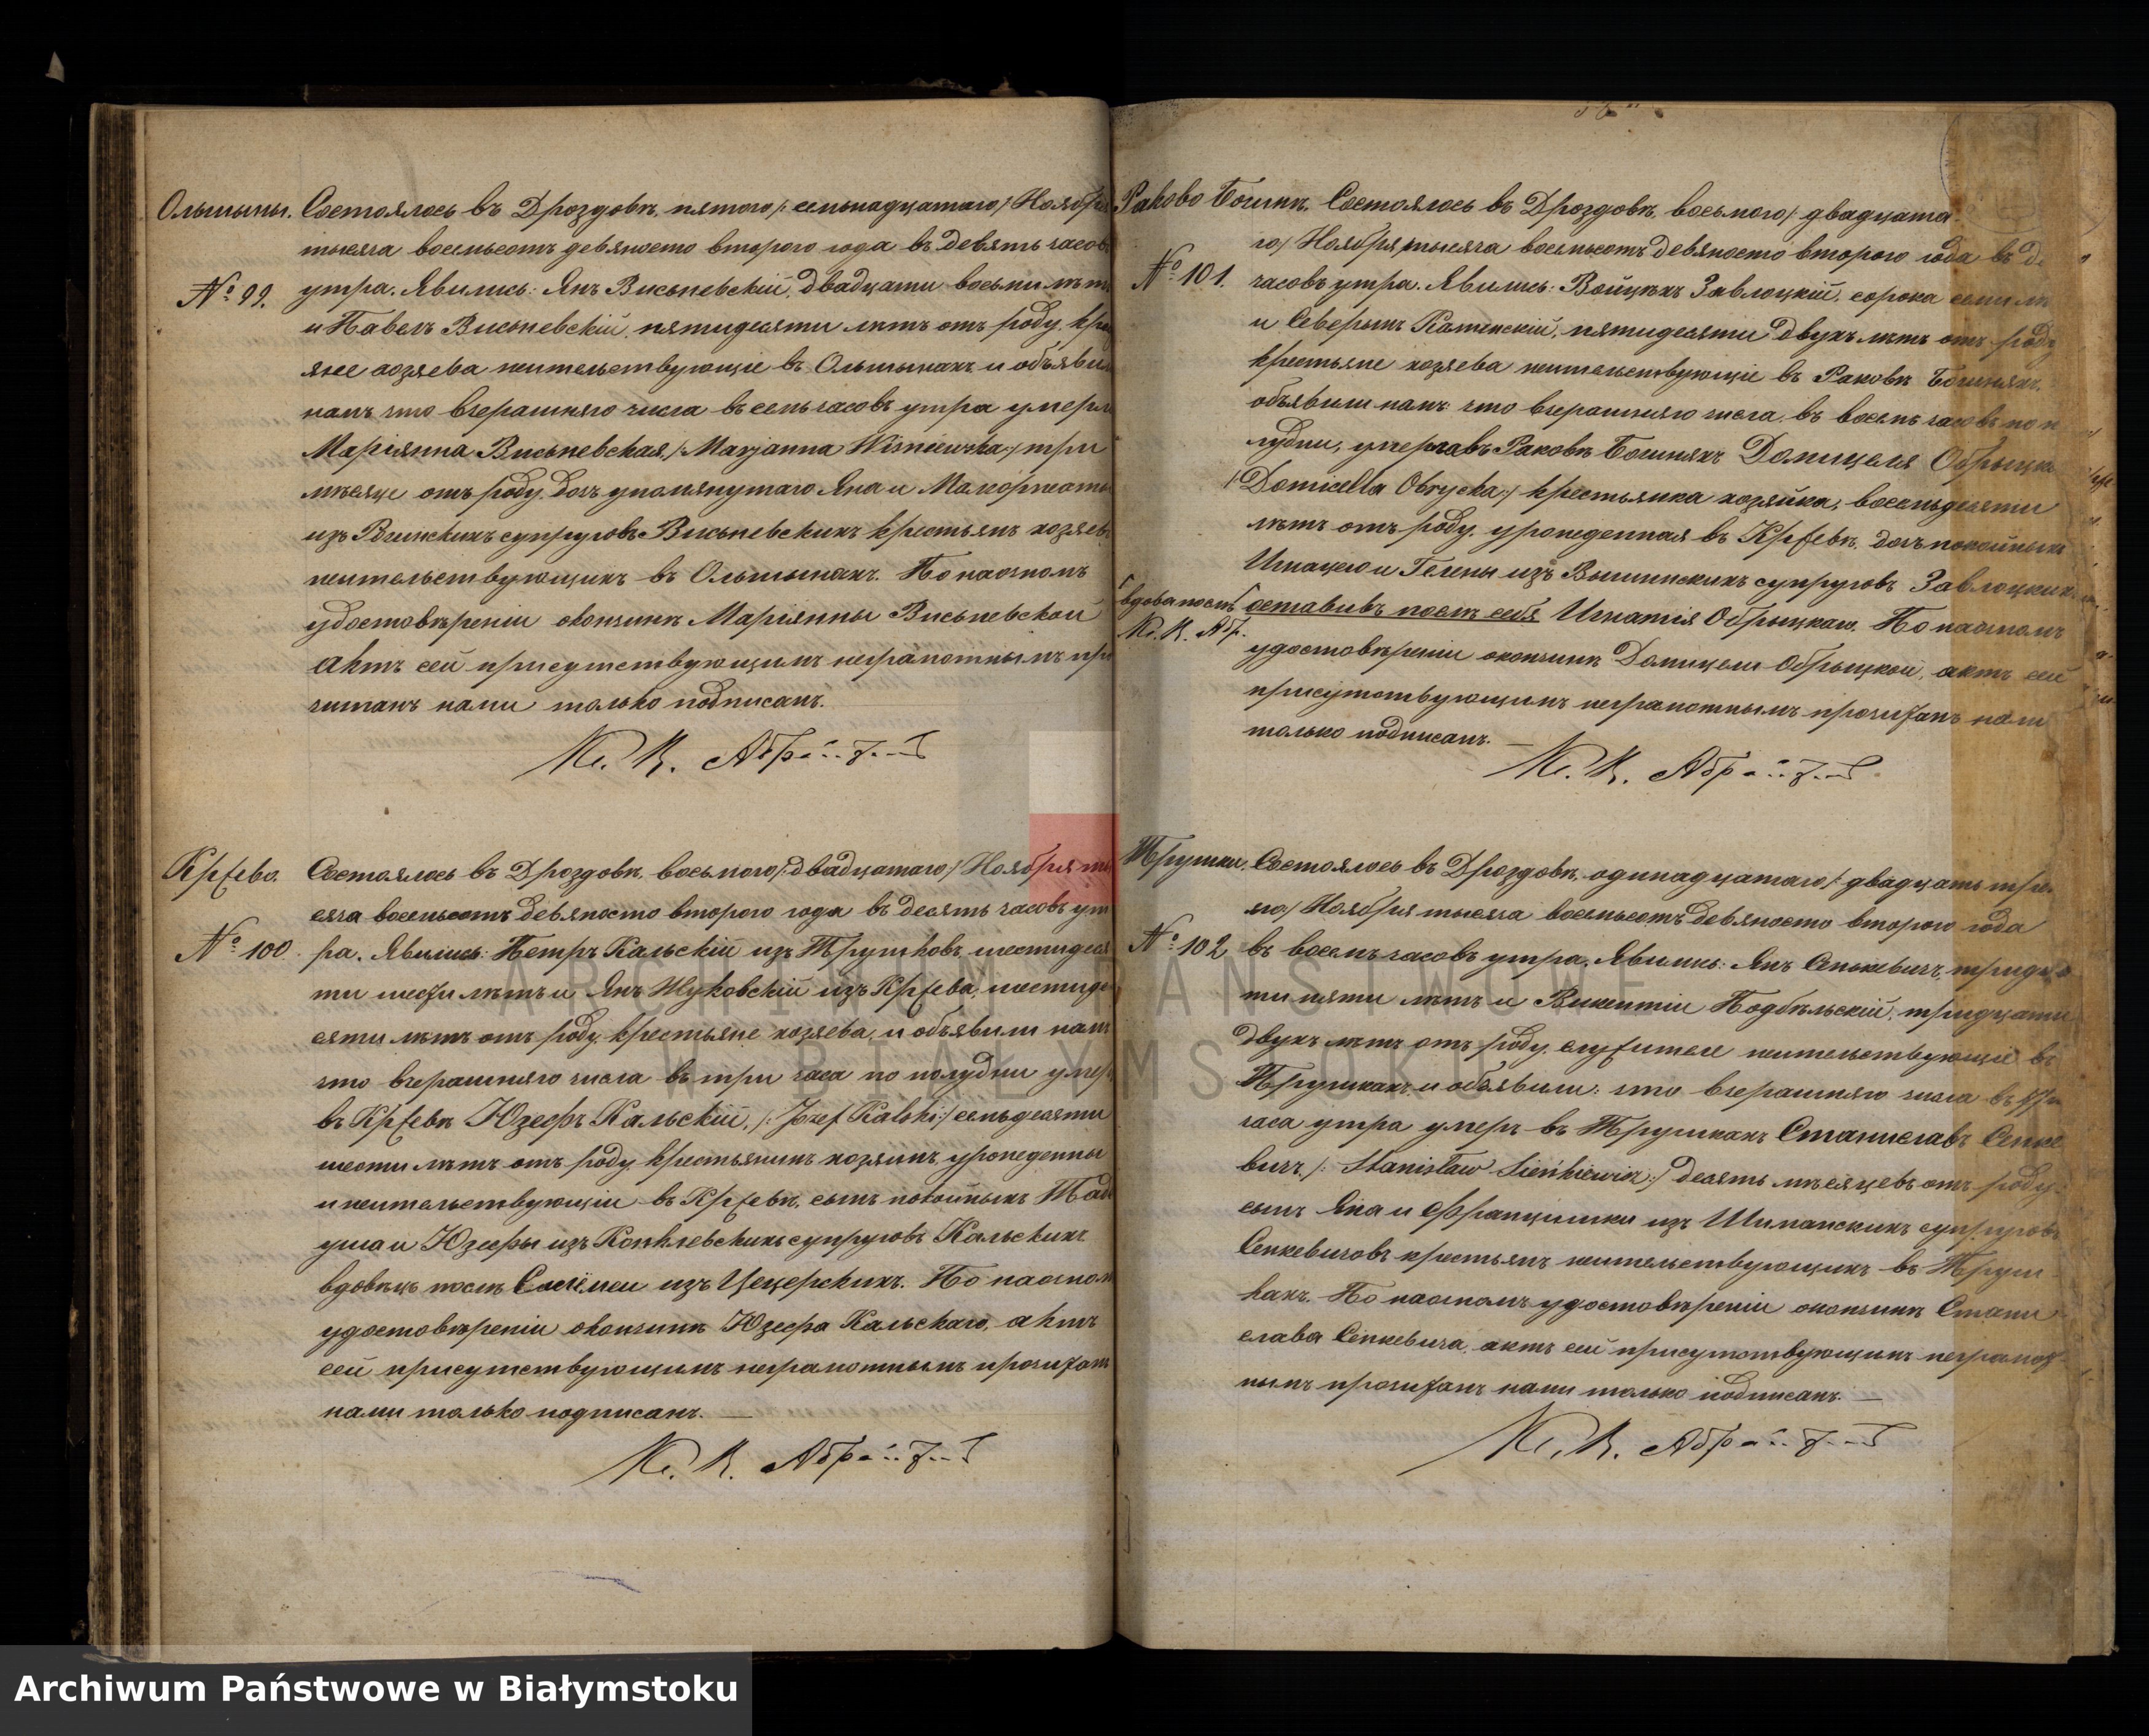 Ольшины. Состоялось въ Дроздовѣ, пятого /: семьнадцатаго :/ Ноября
тысяча восемьсотъ девяносто второго года въ девять часовъ
№ 99. утра. Явились: Янъ Висьневскій, двадцати восьми лѣтъ
и Павелъ Висьневскій, пятидесяти лѣтъ отъ роду, кре
яне хозяева жительствующіе въ Ольшинахъ и объяви
намъ что вчерашняго числа въ семь часовъ утра умерла
Маріянна Висьневская, /: Marjanna Wiśniewska :/ три
мѣсяца отъ роду, дочь упомянутаго Яна и Малгоржаты
изъ супруговъ Висьневскихъ крестьянъ хозяевъ
жительствующихъ въ Ольшинахъ. По наочномъ
удостовѣреніи окончинѣ Маріянны Висьневской
актъ сей присутствующимъ неграмотнымъ про
читанъ нами только подписанъ.
Кс. К. Абр
Кржево. Состоялось въ Дроздовѣ, восьмого /: двадцатаго :/ Ноября ты
сяча восемьсотъ девяносто второго года въ десять часовъ ут
№ 100. ра. Явились: Петръ Кальскій изъ Трушковъ, шестидеся
ти шести лѣтъ и Янъ Жуковскій изъ Кржева, шестид
сяти лѣтъ отъ роду, крестьяне хозяева, и объявили намъ
что вчерашняго числа въ три часа по полудни умеръ
въ Кржевѣ Юзефъ Кальскій, /: Józef Kalski :/ семьдесяти
шести лѣтъ отъ роду, крестьянинъ хозяинъ, урожденны
и жительствующій въ Кржевѣ, сынъ покойныхъ Тад
уша и Юзефы изъ супруговъ Кальскихъ
вдовецъ послѣ изъ Цецерскихъ. По наочномъ
удостовѣреніи окончинѣ Юзефа Кальскаго, актъ
сей присутствующимъ неграмотнымъ прочитанъ
нами только подписанъ. —
Кс. К. Абр
Раково Богинѣ. Состоялось въ Дроздовѣ, восьмого /: двадцата
го :/ Ноября, тысяча восемьсотъ девяносто второго года въ д
№ 101. часовъ утра. Явились: Войцѣхъ Завлоцкій, сорока семи лѣ
и Северынъ Каменскій, пятидесяти двухъ лѣтъ отъ роду
крестьяне хозяева жительствующіе въ Раковѣ Богиняхъ,
объявили намъ что вчерашняго числа въ восемь часовъ по по
лудни, умерла въ Раковѣ Богиняхъ Домицеля Обрыцка
/: Domicella Obrycka :/ крестьянка хозяйка, восемьдесяти
лѣтъ отъ роду, урожденная въ Кржевѣ, дочь покойныхъ
Игнацего и Гелены изъ супруговъ Завлоцкихъ
вдова послѣ оставивъ послѣ себя Игнатія Обрыцкаго. По наочномъ
Кс. К. Абр. удостовѣреніи окончинѣ Домицели Обрыцкой, актъ сей
присутствующимъ неграмотнымъ прочитанъ нами
только подписанъ. —
Кс. К. Абр
Трушки. Состоялось въ Дроздовѣ, одинадцатаго /: двадцать тре
го :/ Ноября тысяча восемьсотъ девяносто второго года
№ 102 въ восемь часовъ утра. Явились: Янъ Сенкевичъ, тридца
ти пяти лѣтъ и Викентій Подбѣльскій, тридцати
двухъ лѣтъ отъ роду, служители жительствующіе въ
Трушкахъ и объявили: что вчерашняго числа въ три
часа утра умеръ въ Трушкахъ Станиславъ Сенке
вичъ /: Stanisław Sieńkiewicz :/ десять мѣсяцевъ отъ роду,
сынъ Яна и Францишки изъ супруговъ
Сенкевичовъ крестьянъ жительствующихъ въ Труш
кахъ. По наочномъ удостовѣреніи окончинѣ Стани
слава Сенкевича, актъ сей присутствующимъ неграмот
нымъ прочитанъ нами только подписанъ. —
Кс. К. Абр
ARCHIWUM PAŃSTWOWE
W BIAŁYMSTOKU
Archiwum Państwowe w Białymstoku